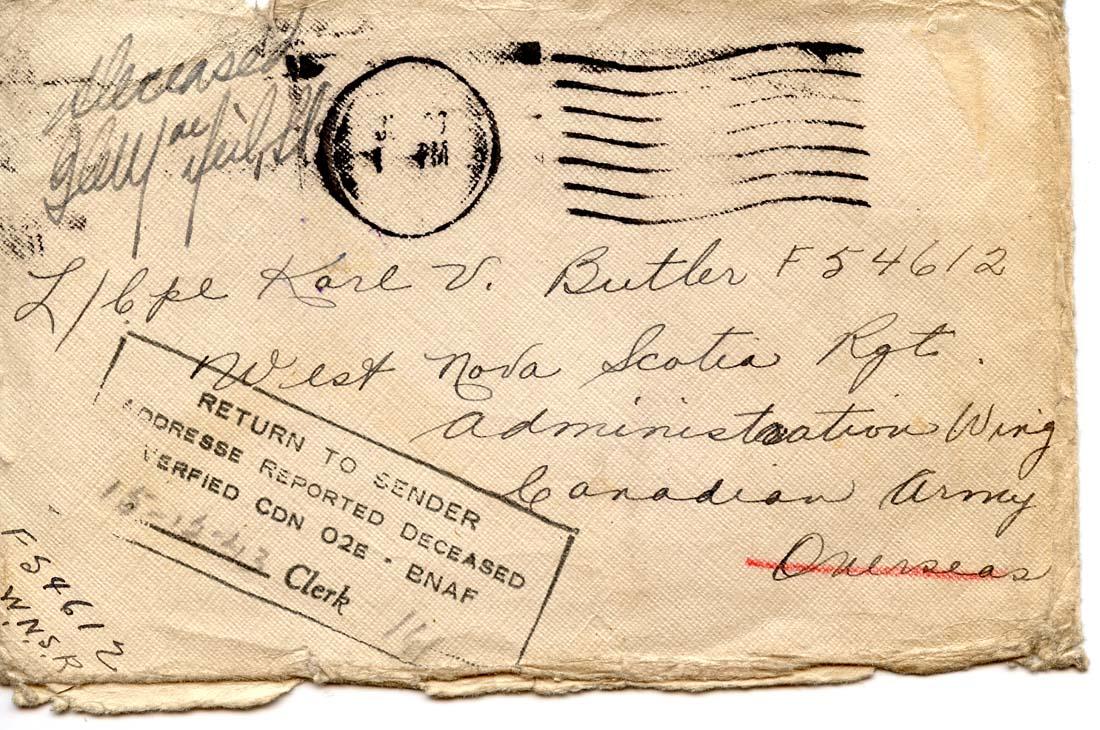 Deceased
PM
L/Cpl Karl V. Butler F54612
West Nova Scotia Rgt.
Administration Wing
Canadian Army
Overseas
RETURN TO SENDER
ADDRESSE REPORTED DECEASED
VERFIED CDN 02E - BNAF
Clerk
F54612
W.N.S.R